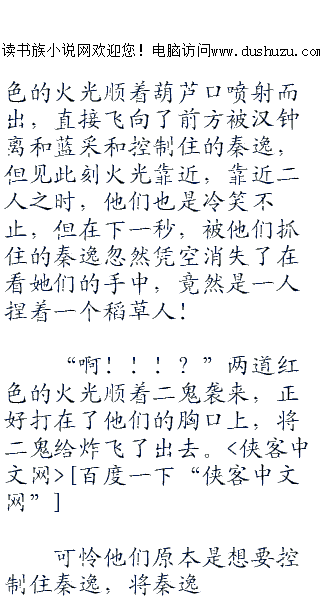 读书族小说网欢迎您！电脑访问www.dushuzu.com
色的火光顺着葫芦口喷射而
出，直接飞向了前方被汉钟
离和蓝采和控制住的秦逸，
但见此刻火光靠近，靠近二
人之时，他们也是冷笑不
止，但在下一秒，被他们抓
住的秦逸忽然凭空消失了在
看她们的手中，竟然是一人
捏着一个稻草人！
“啊！！！？”两道红
色的火光顺着二鬼袭来，正
好打在了他们的胸口上，将
二鬼给炸飞了出去。<侠客中
文网>[百度一下“侠客中文
网”]
可怜他们原本是想要控
制住秦逸，将秦逸